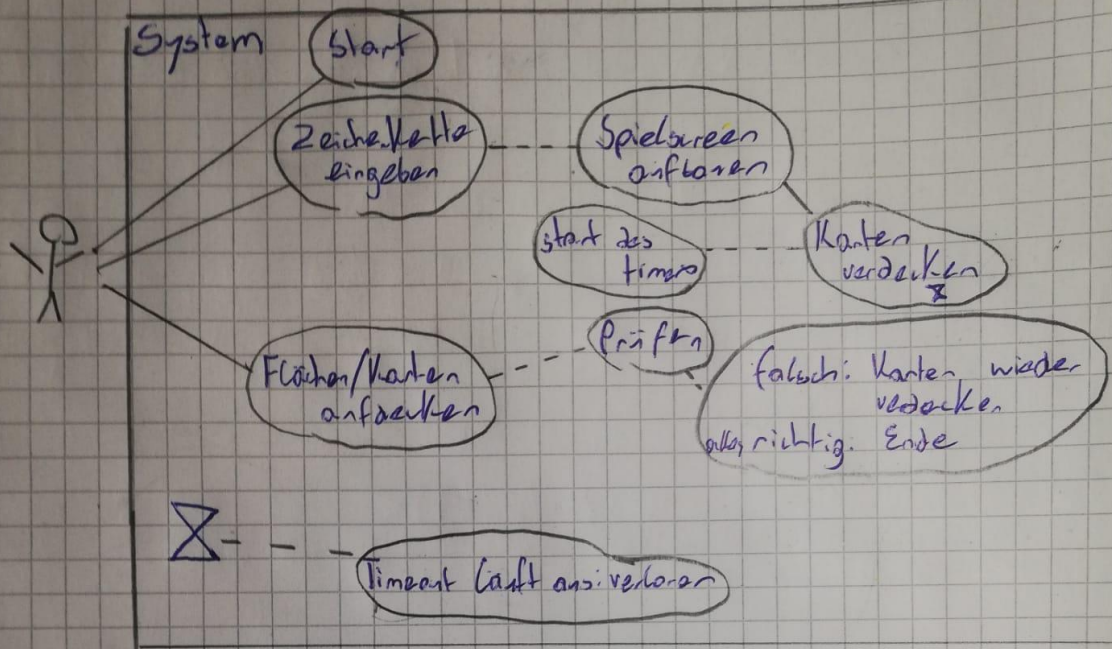 System
Start
Zeichenkette
eingeben
Spielscreen
aufbauen
Start des
timers
Karten
verdecken
Flächen/Karten
aufdecken
Prüfen
falsch: Karten wieder
verdecken
alles richtig: Ende
Timeout läuft aus: verloren